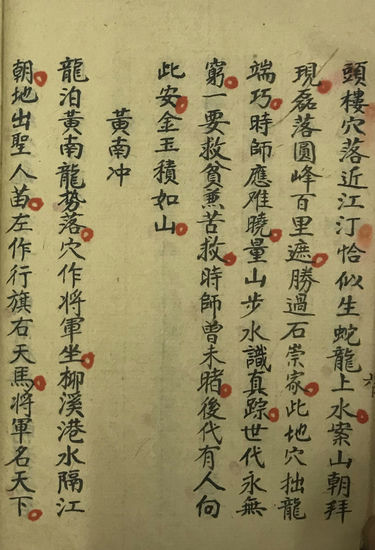 頭樓穴落近江汀恰似生蛇龍上水案山朝拜
現磊落圓峰百里遮勝過石崇家此地穴拙龍
端巧時師應难曉量山步水識真踪世代永無
窮一要救貧兼苦救時師曾未睹後代有人向
此安金玉積如山
黃南冲
龍泊黃南龍势落穴作將軍坐柳溪港水隔江
朝地出聖人苗左作行旗右天馬將軍名天下